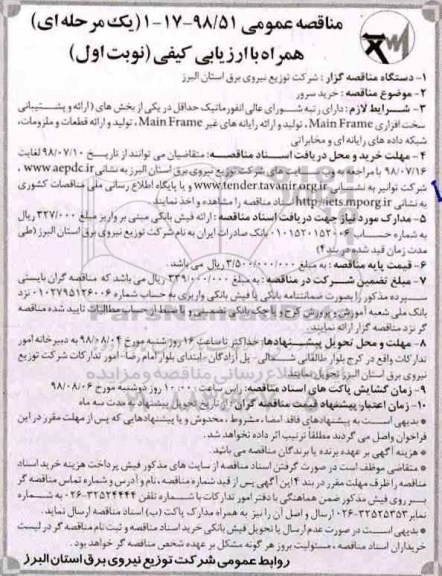 مناقصه عمومی ۹۸/۵۱-۱۷-۱ (یک مرحله ای)
همراه با ارزیابی کیفی (نوبت اول)
۱- دستگاه مناقصه گزار : شرکت توزیع نیروی برق استان البرز
۲- موضوع مناقصه : خرید سرور
۳- شرایط لازم : دارای رتبه شورای عالی انفورماتیک حداقل در یکی از بخش های (ارائه و پشتیبانی
سخت افزاری Main Frame ، تولید و ارائه رایانه های غیر Main Frame ، تولید و ارائه قطعات و ملزومات،
شبکه داده های رایانه ای و مخابراتی
۴- مهلت خرید و محل دریافت اسناد مناقصه : متقاضیان می توانند از تاریخ ۹۸/۰۷/۱۰ لغایت
۹۸/۰۷/۱۶ با مراجعه به سایت های شرکت توزیع نیروی برق استان البرز به نشانی www.aepdc.ir ،
شرکت توانیر به نشانی www.tender.tavanir.org.ir و یا پایگاه اطلاع رسانی ملی مناقصات کشوری
به نشانی http://iets.mporg.ir اسناد مناقصه را مشاهده و اخذ نمایند.
۵- مدارک مورد نیاز جهت دریافت اسناد مناقصه : ارائه فیش بانکی مبنی بر واریز مبلغ ۳۲۷/۰۰۰ ریال
به شماره حساب ۰۱۰۱۵۲۰۱۵۲۰۰۶ بانک صادرات ایران به نام شرکت توزیع نیروی برق استان البرز (طی
مدت زمان قید شده در بند ۴)
۶- قیمت پایه مناقصه : به مبلغ ۳/۵۰۰/۰۰۰/۰۰۰ ریال می باشد.
۷- مبلغ تضمین شرکت در مناقصه : به مبلغ ۳۳۹/۰۰۰/۰۰۰ ریال می باشد که مناقصه گران بایستی
سپرده مذکور را بصورت ضمانتنامه بانکی یا فیش بانکی واریزی به حساب شماره ۰۱۰۲۷۹۵۱۲۶۰۰۶ نزد
بانک ملی شعبه آموزش و پرورش کرج و یا چک بانکی تضمینی و یا ضبط از حساب مطالبات تایید شده مناقصه
گر نزد مناقصه گزار ارائه نمایند.
۸- مهلت و محل تحویل پیشنهادها : حداکثر تا ساعت ۱۶ روز شنبه مورخ ۹۸/۰۸/۰۴ به دبیرخانه امور
تدارکات واقع در کرج بلوار طالقانی شمالی- پل آزادگان- ابتدای بلوار امام رضا- امور تدارکات شرکت توزیع
نیروی برق استان البرز تحویل نمایند.
۹- زمان گشایش پاکت های اسناد مناقصه : راس ساعت ۱۰:۰۰ روز دوشنبه مورخ ۹۸/۰۸/۰۶
۱۰- زمان اعتبار پیشنهاد قیمت مناقصه گران : از تاریخ تحویل پیشنهاد به مدت سه ماه
* بدیهی است به پیشنهادهای فاقد امضا، مشروط ، مخدوش و یا پیشنهادهایی که پس از مهلت مقرر در این
فراخوان واصل می گردند مطلقاً ترتیب اثر داده نخواهد شد.
* هزینه آگهی بر عهده برنده یا برندگان مناقصه می باشد.
* متقاضی موظف است در صورت گرفتن اسناد مناقصه از سایت های مذکور فیش پرداخت هزینه خرید اسناد
مناقصه را ظرف مهلت مقرر در بند ۴ این آگهی پس از قید شماره مناقصه، نام و آدرس و شماره تماس مناقصه گر
بر روی فیش مذکور ضمن هماهنگی با دفتر امور تدارکات با شماره تلفن ۳۲۵۲۴۴۴۴-۰۲۶ به شماره
نمابر ۳۲۵۲۵۳۵۳-۰۲۶ ارسال و اصل آن را نیز به همراه مدارک پاکت (ب) اسناد مناقصه ارسال نماید.
* بدیهی است در صورت عدم ارسال یا تحویل فیش بانکی خرید اسناد مناقصه و ثبت نام مناقصه گر در لیست
خریداران اسناد مناقصه ، مسئولیت بروز هر گونه مشکل بر عهده شخص مناقصه گر خواهد بود.
روابط عمومی شرکت توزیع نیروی برق استان البرز